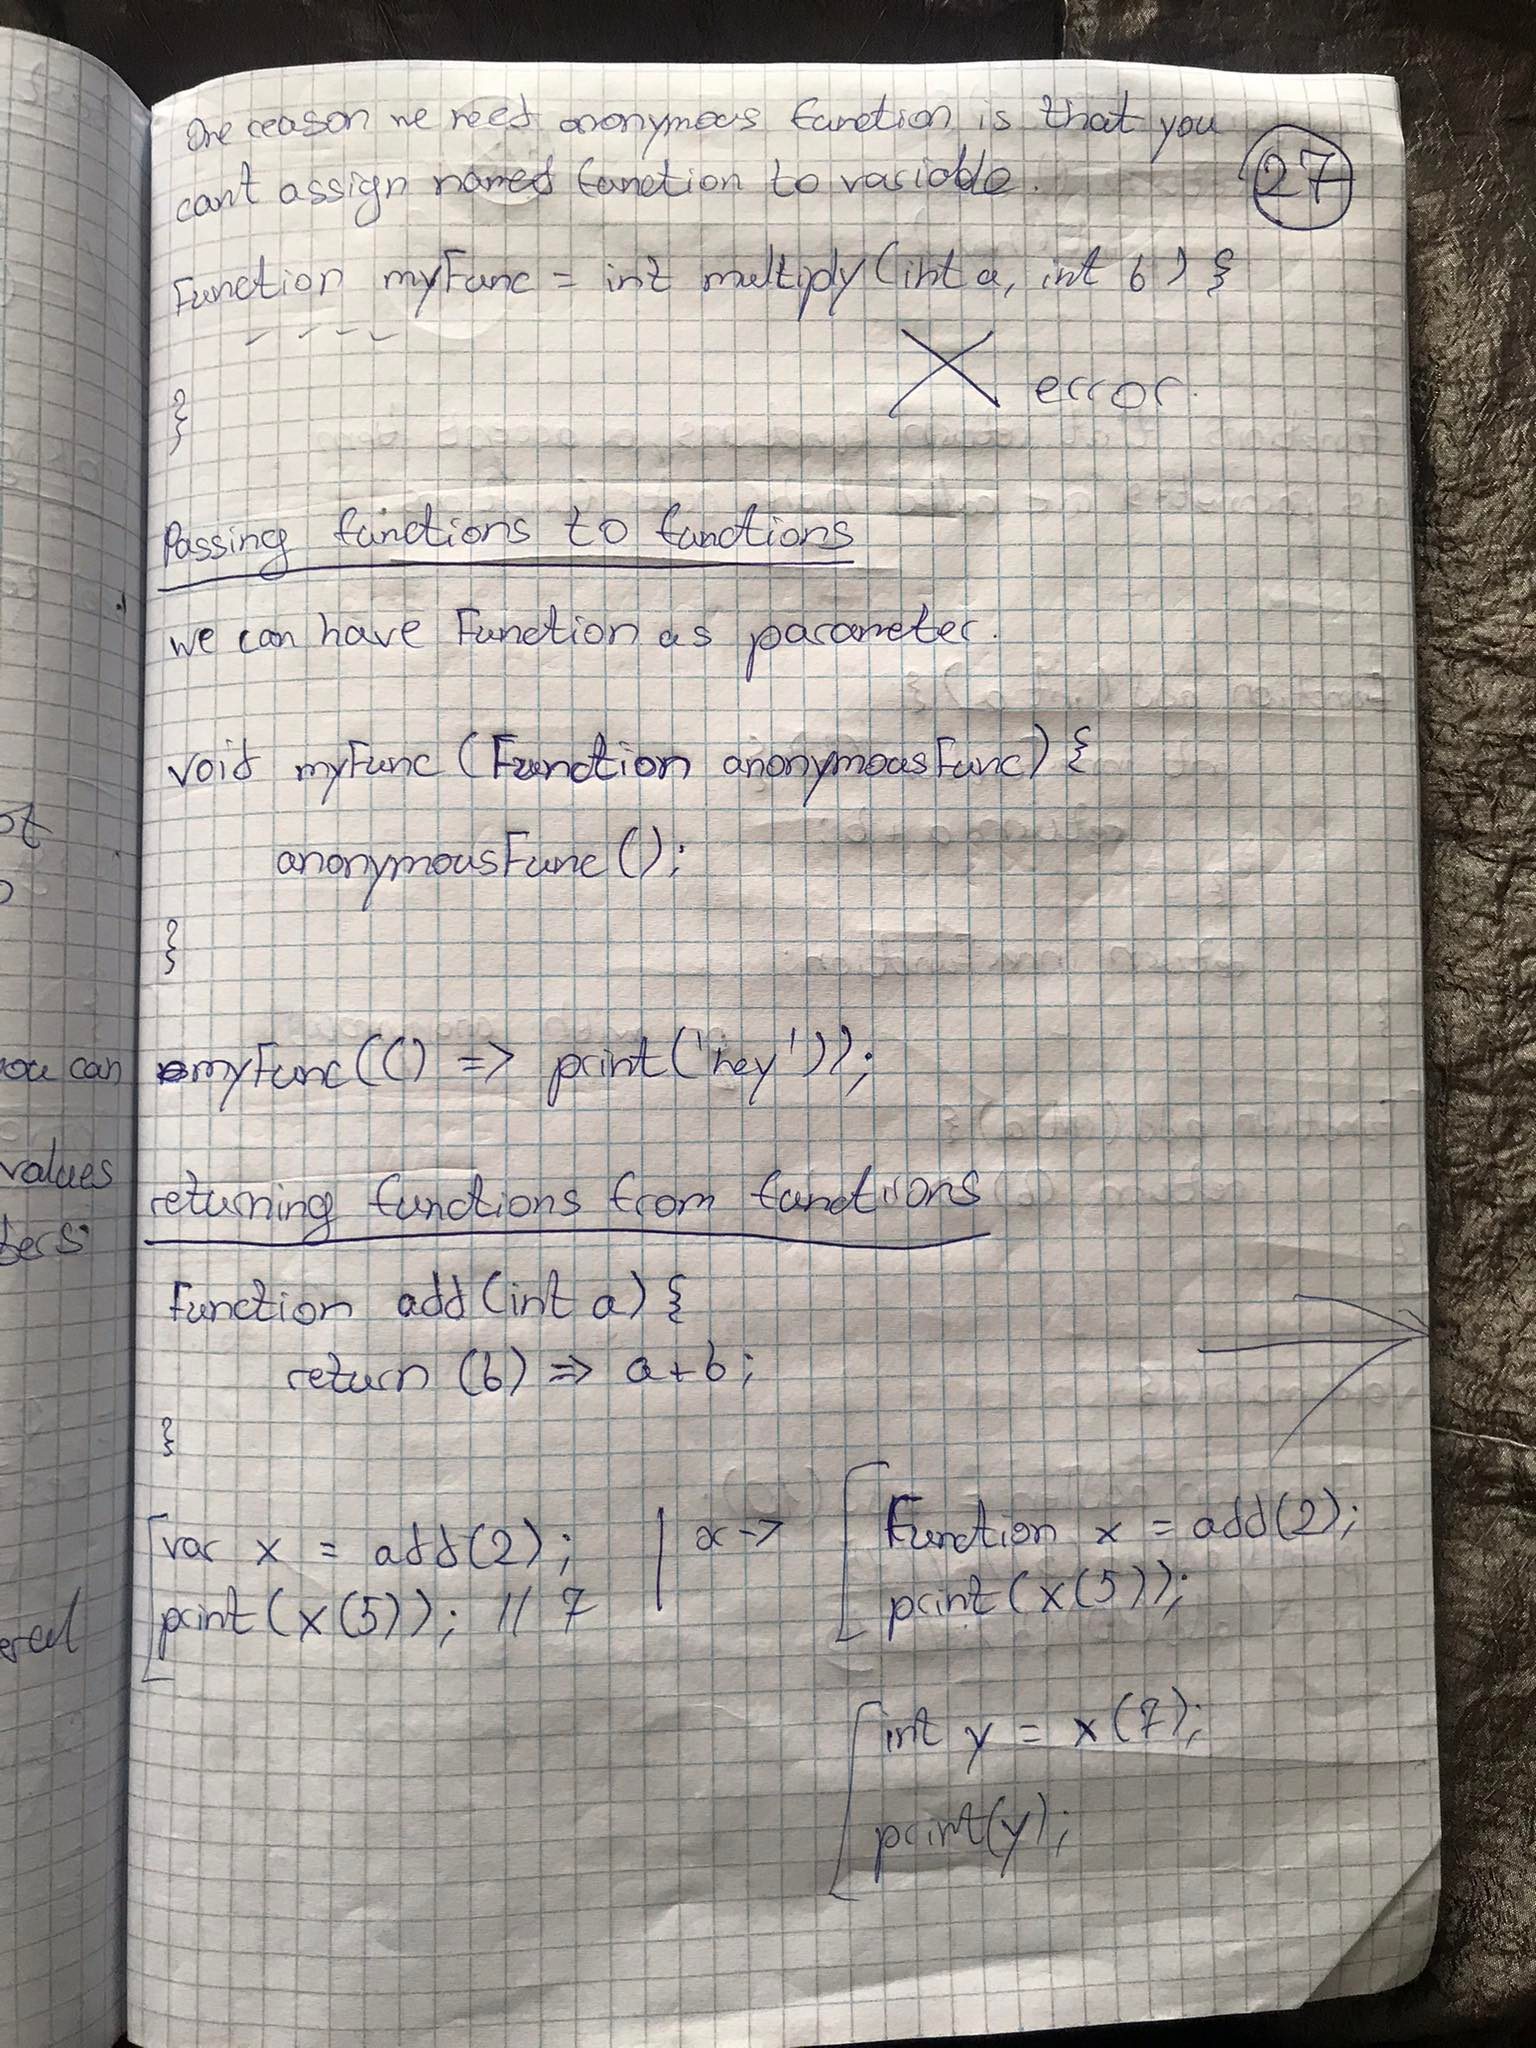 One reason we need anonymous function is that you
can't assign named function to variable.
27
Function myFunc = int multiply(int a, int b) {
}
error.
Passing functions to functions
we can have Function as parameter.
void myFunc (Function anonymousFunc) {
anonymousFunc();
}
myFunc(() => print('hey'));
returning functions from functions
Function add(int a) {
return (b) => a+b;
}
var x = add(2);
print(x(5)); // 7
Function x = add(2);
print(x(5));
int y = x(7);
print(y);
ou can
values